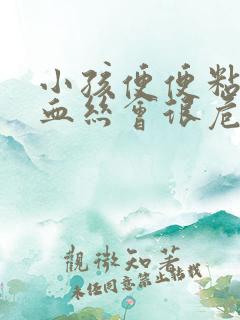 小孩便便粘
血丝会很危
觀微知著
未经同意禁止转载